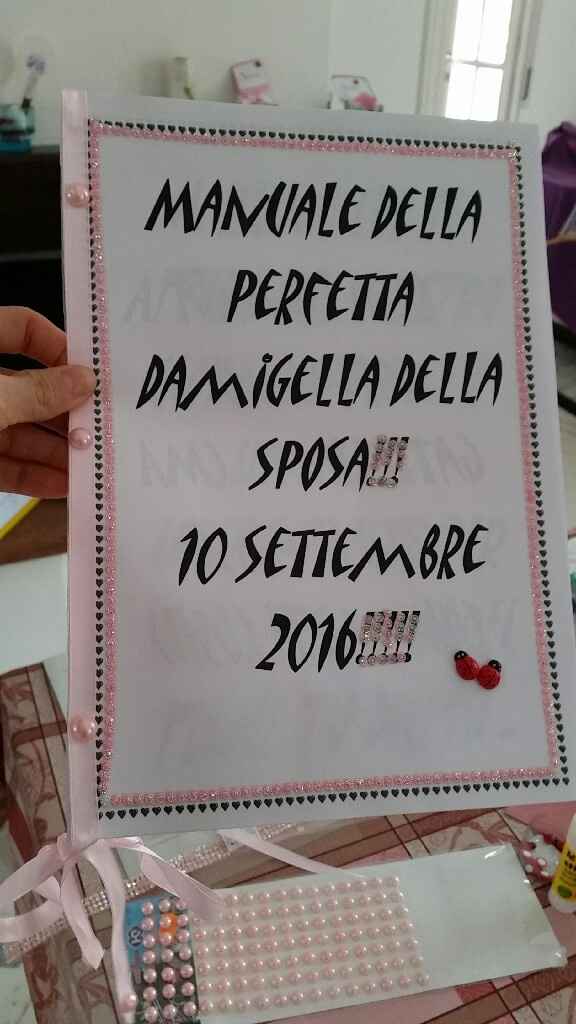 MANUALE DELLA
PERFETTA
DAMIGELLA DELLA
SPOSA!!!
10 SETTEMBRE
2016!!!!!